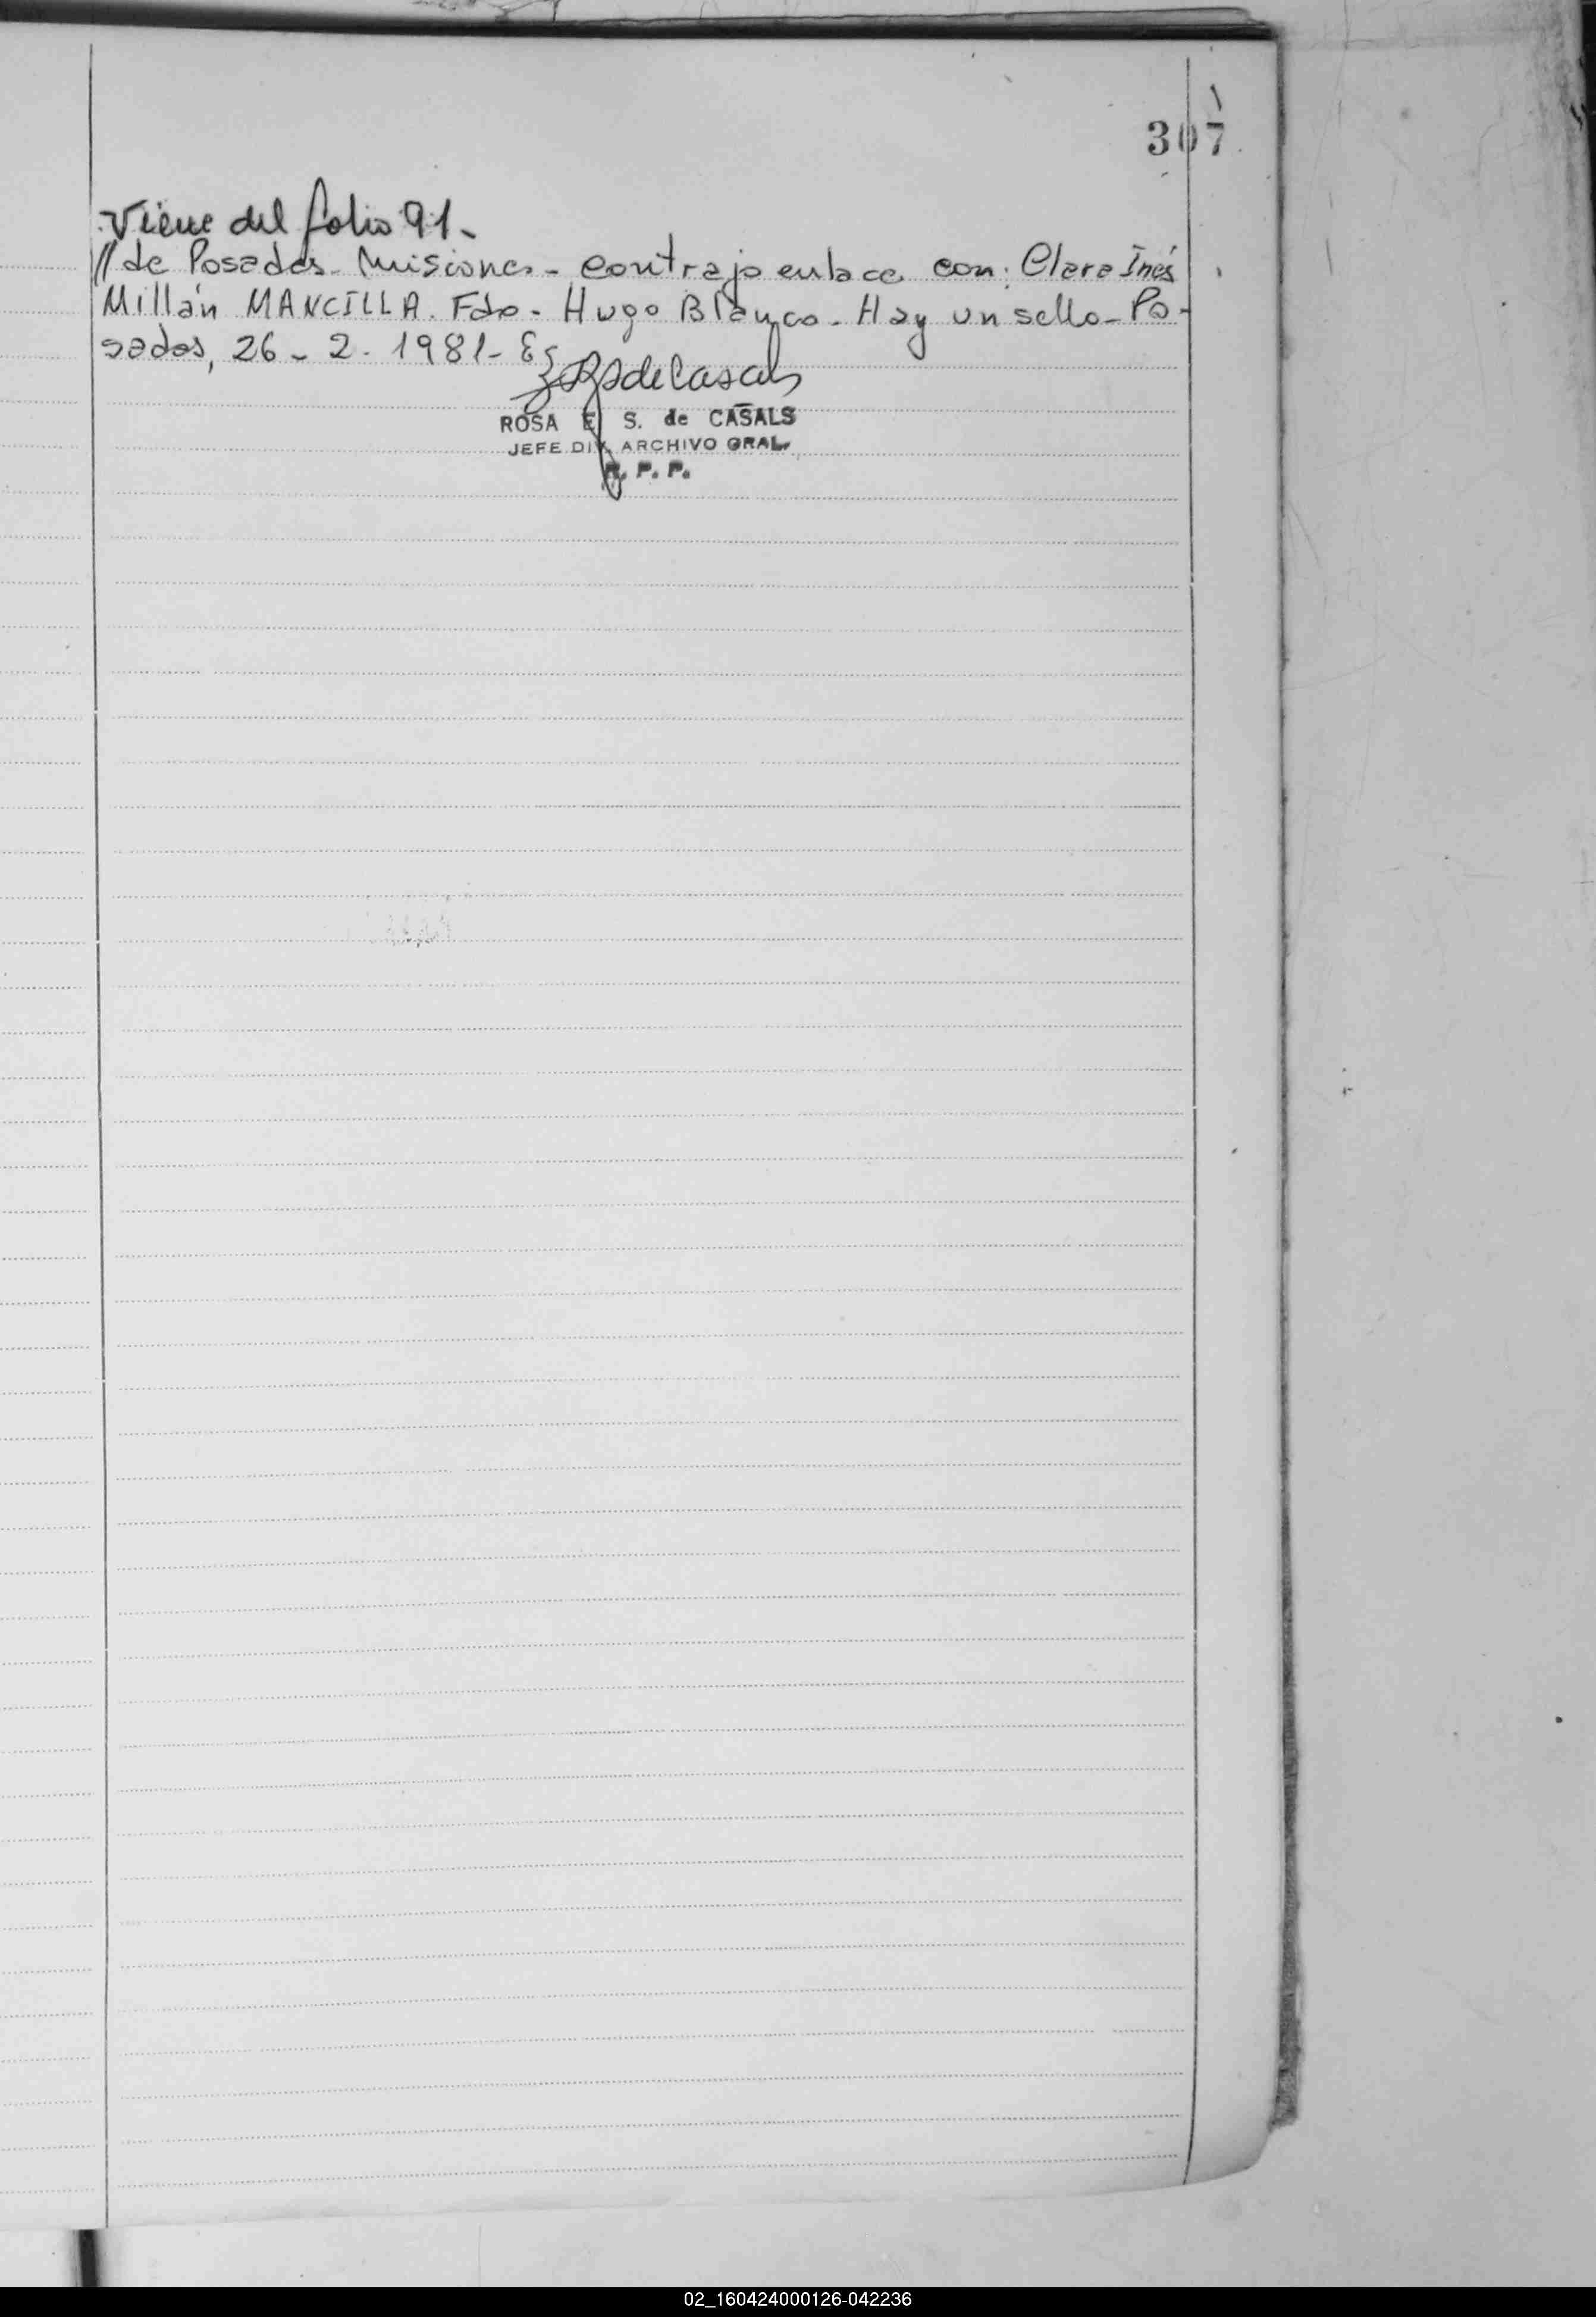 307
Viene del folio 91-
// de Posadas- Misiones- Contrajo enlace con: Clara Inés
Millán MANCILLA. Fdo- Hugo Blanco- Hay un sello- Po-
sadas, 26-2-1981-
de Casals
ROSA E. S. de CASALS
JEFE DIV. ARCHIVO GRAL.
R. P. P.
02_160424000126-042236